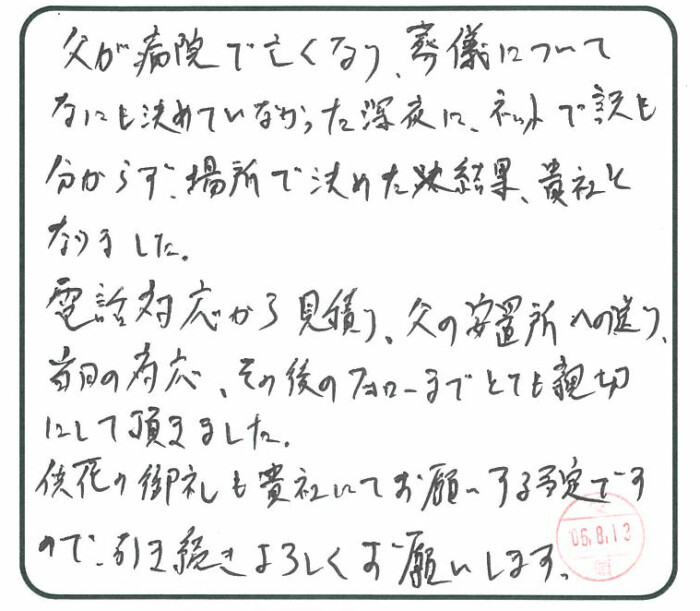 父が病院で亡くなり、葬儀について
なにも決めていなかった深夜に、ネットで訳も
分からず、場所で決めた結果、貴社と
なりました。
電話対応から見積り、父の安置所への送り、
当日の対応、その後のフォローまでとても親切
にして頂きました。
供花の御礼も貴社にてお願いする予定です
ので、引き続きよろしくお願いします。
06.8.13